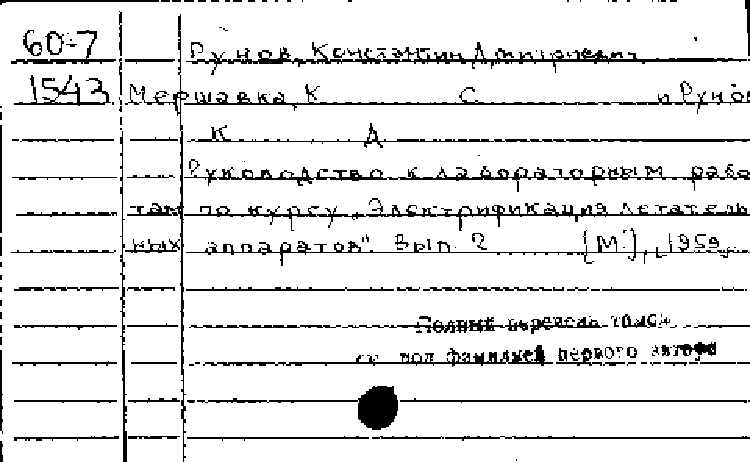 60-7 Рунов, Константин Дмитриевич
1543 Мершавка, К С и Рунов
К Д
Руководство к лабораторным рабо-
там по курсу „Электрификация летатель-
ных аппаратов". Вып. 2 [М.], 1959.
Полный перечень томов
см под фамилией первого автора